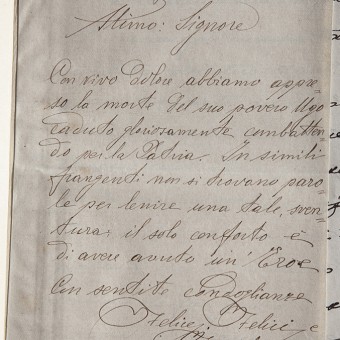 Ill.mo: Signore
Con vivo dolore abbiamo appre-
so la morte del suo povero Ugo
caduto gloriosamente combatten-
do per la Patria. In simili
frangenti non si trovano paro-
le per lenire una tale sven-
tura: il solo conforto è
di avere avuto un' Eroe
Con sentite condoglianze
Felice Felici e